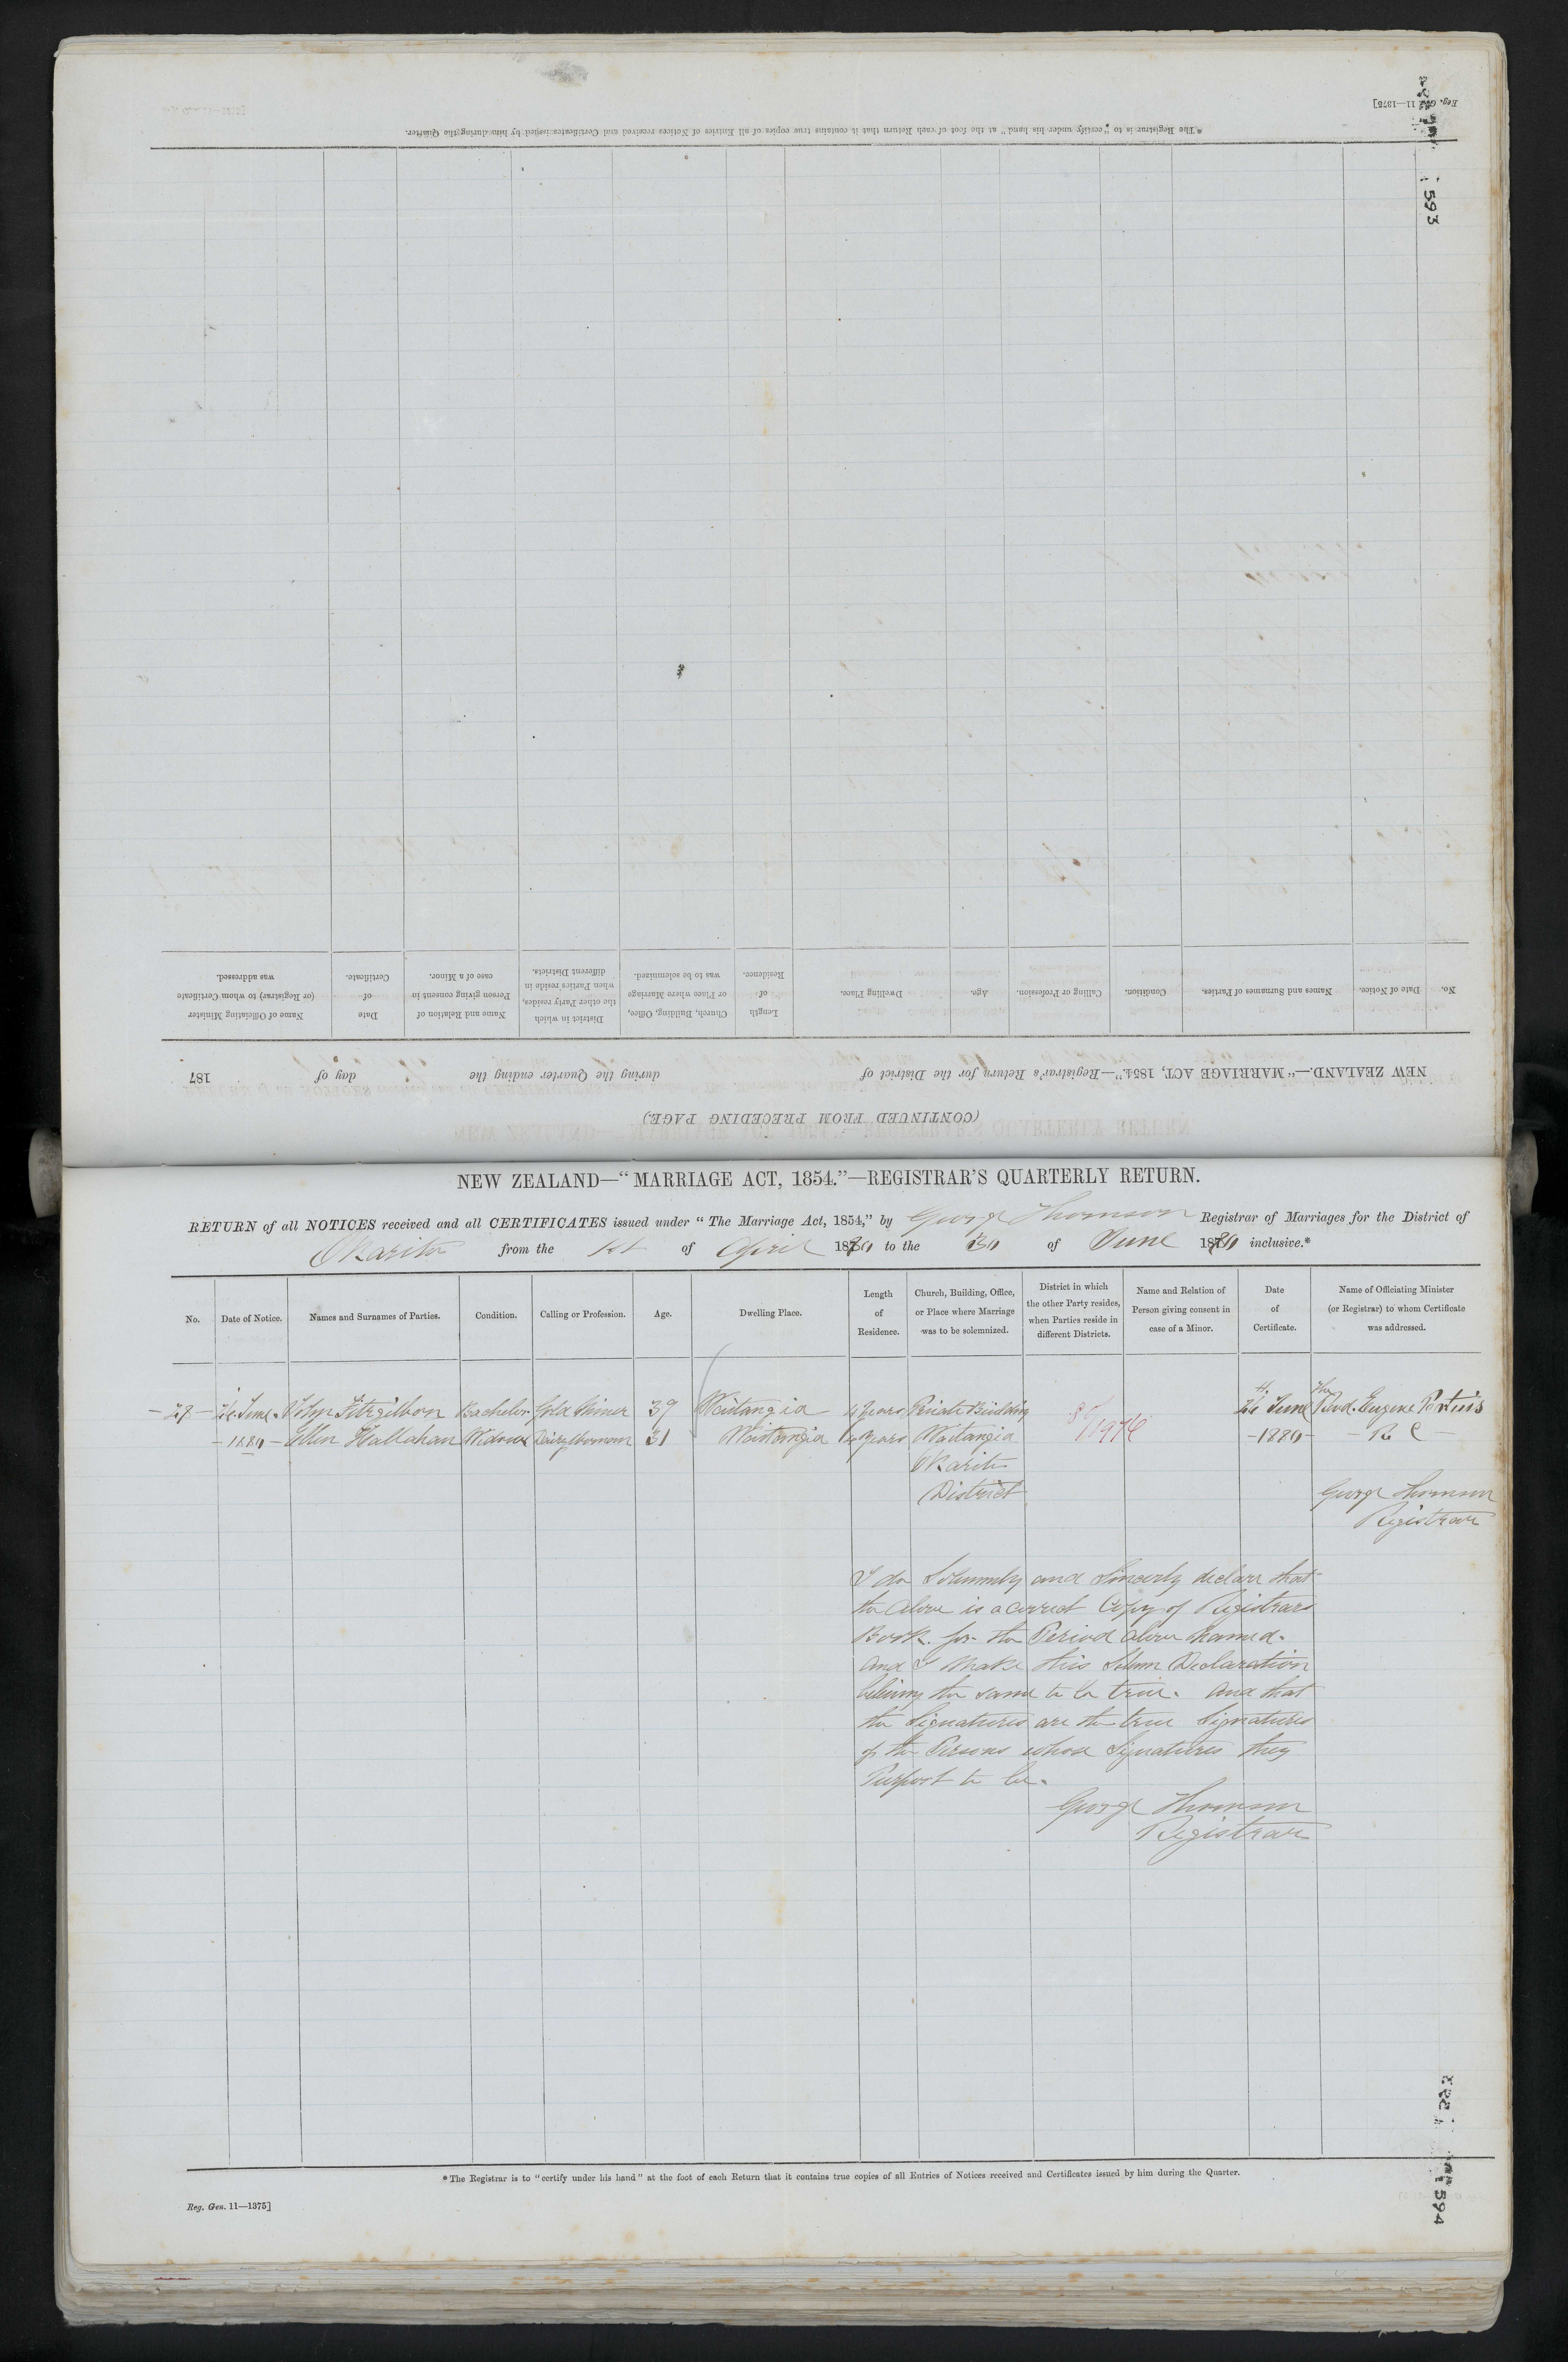 Reg. Gen. 11—1375]
* The Registrar is to "certify under his hand" at the foot of each Return that it contains true copies of all Entries of Notices received and Certificates issued by him during the Quarter.
593
No.
Date of Notice.
Names and Surnames of Parties.
Condition.
Calling or Profession.
Age.
Dwelling Place.
Length of Residence.
Church, Building, Office, or Place where Marriage was to be solemnized.
District in which the other Party resides, when Parties reside in different Districts.
Name and Relation of Person giving consent in case of a Minor.
Date of Certificate.
Name of Officiating Minister (or Registrar) to whom Certificate was addressed.
NEW ZEALAND.—"MARRIAGE ACT, 1854."—Registrar's Return for the District of during the Quarter ending the day of 187
(CONTINUED FROM PRECEDING PAGE.)
NEW ZEALAND—"MARRIAGE ACT, 1854."—REGISTRAR'S QUARTERLY RETURN.
RETURN of all NOTICES received and all CERTIFICATES issued under "The Marriage Act, 1854," by George Thomson Registrar of Marriages for the District of
Okarito from the 1st of April 1880 to the 30 of June 1880 inclusive.*
No.
Date of Notice.
Names and Surnames of Parties.
Condition.
Calling or Profession.
Age.
Dwelling Place.
Length
of
Residence.
Church, Building, Office,
or Place where Marriage
was to be solemnized.
District in which
the other Party resides,
when Parties reside in
different Districts.
Name and Relation of
Person giving consent in
case of a Minor.
Date
of
Certificate.
Name of Officiating Minister
(or Registrar) to whom Certificate
was addressed.
June John Fitzgibbon Bachelor Gold Miner 39 Waitangia 4 Years Private Building 80/1976 June The Revd. Eugene Pertuis
1880 Ellen Hallahan Widow Dairywoman 31 Waitangia years Waitangia 1880 R C
Okarito
District
George Thomson
Registrar
I do Solemnly and Sincerly declare that
the above is a correct Copy of Registrars
Book for the Period above named.
And I make this Solemn Declaration
believing the same to be true. And that
the Signatures are the true Signatures
of the Persons whose Signatures they
Purport to be.
George Thomson
Registrar
* The Registrar is to "certify under his hand" at the foot of each Return that it contains true copies of all Entries of Notices received and Certificates issued by him during the Quarter.
Reg. Gen. 11—1375]
594